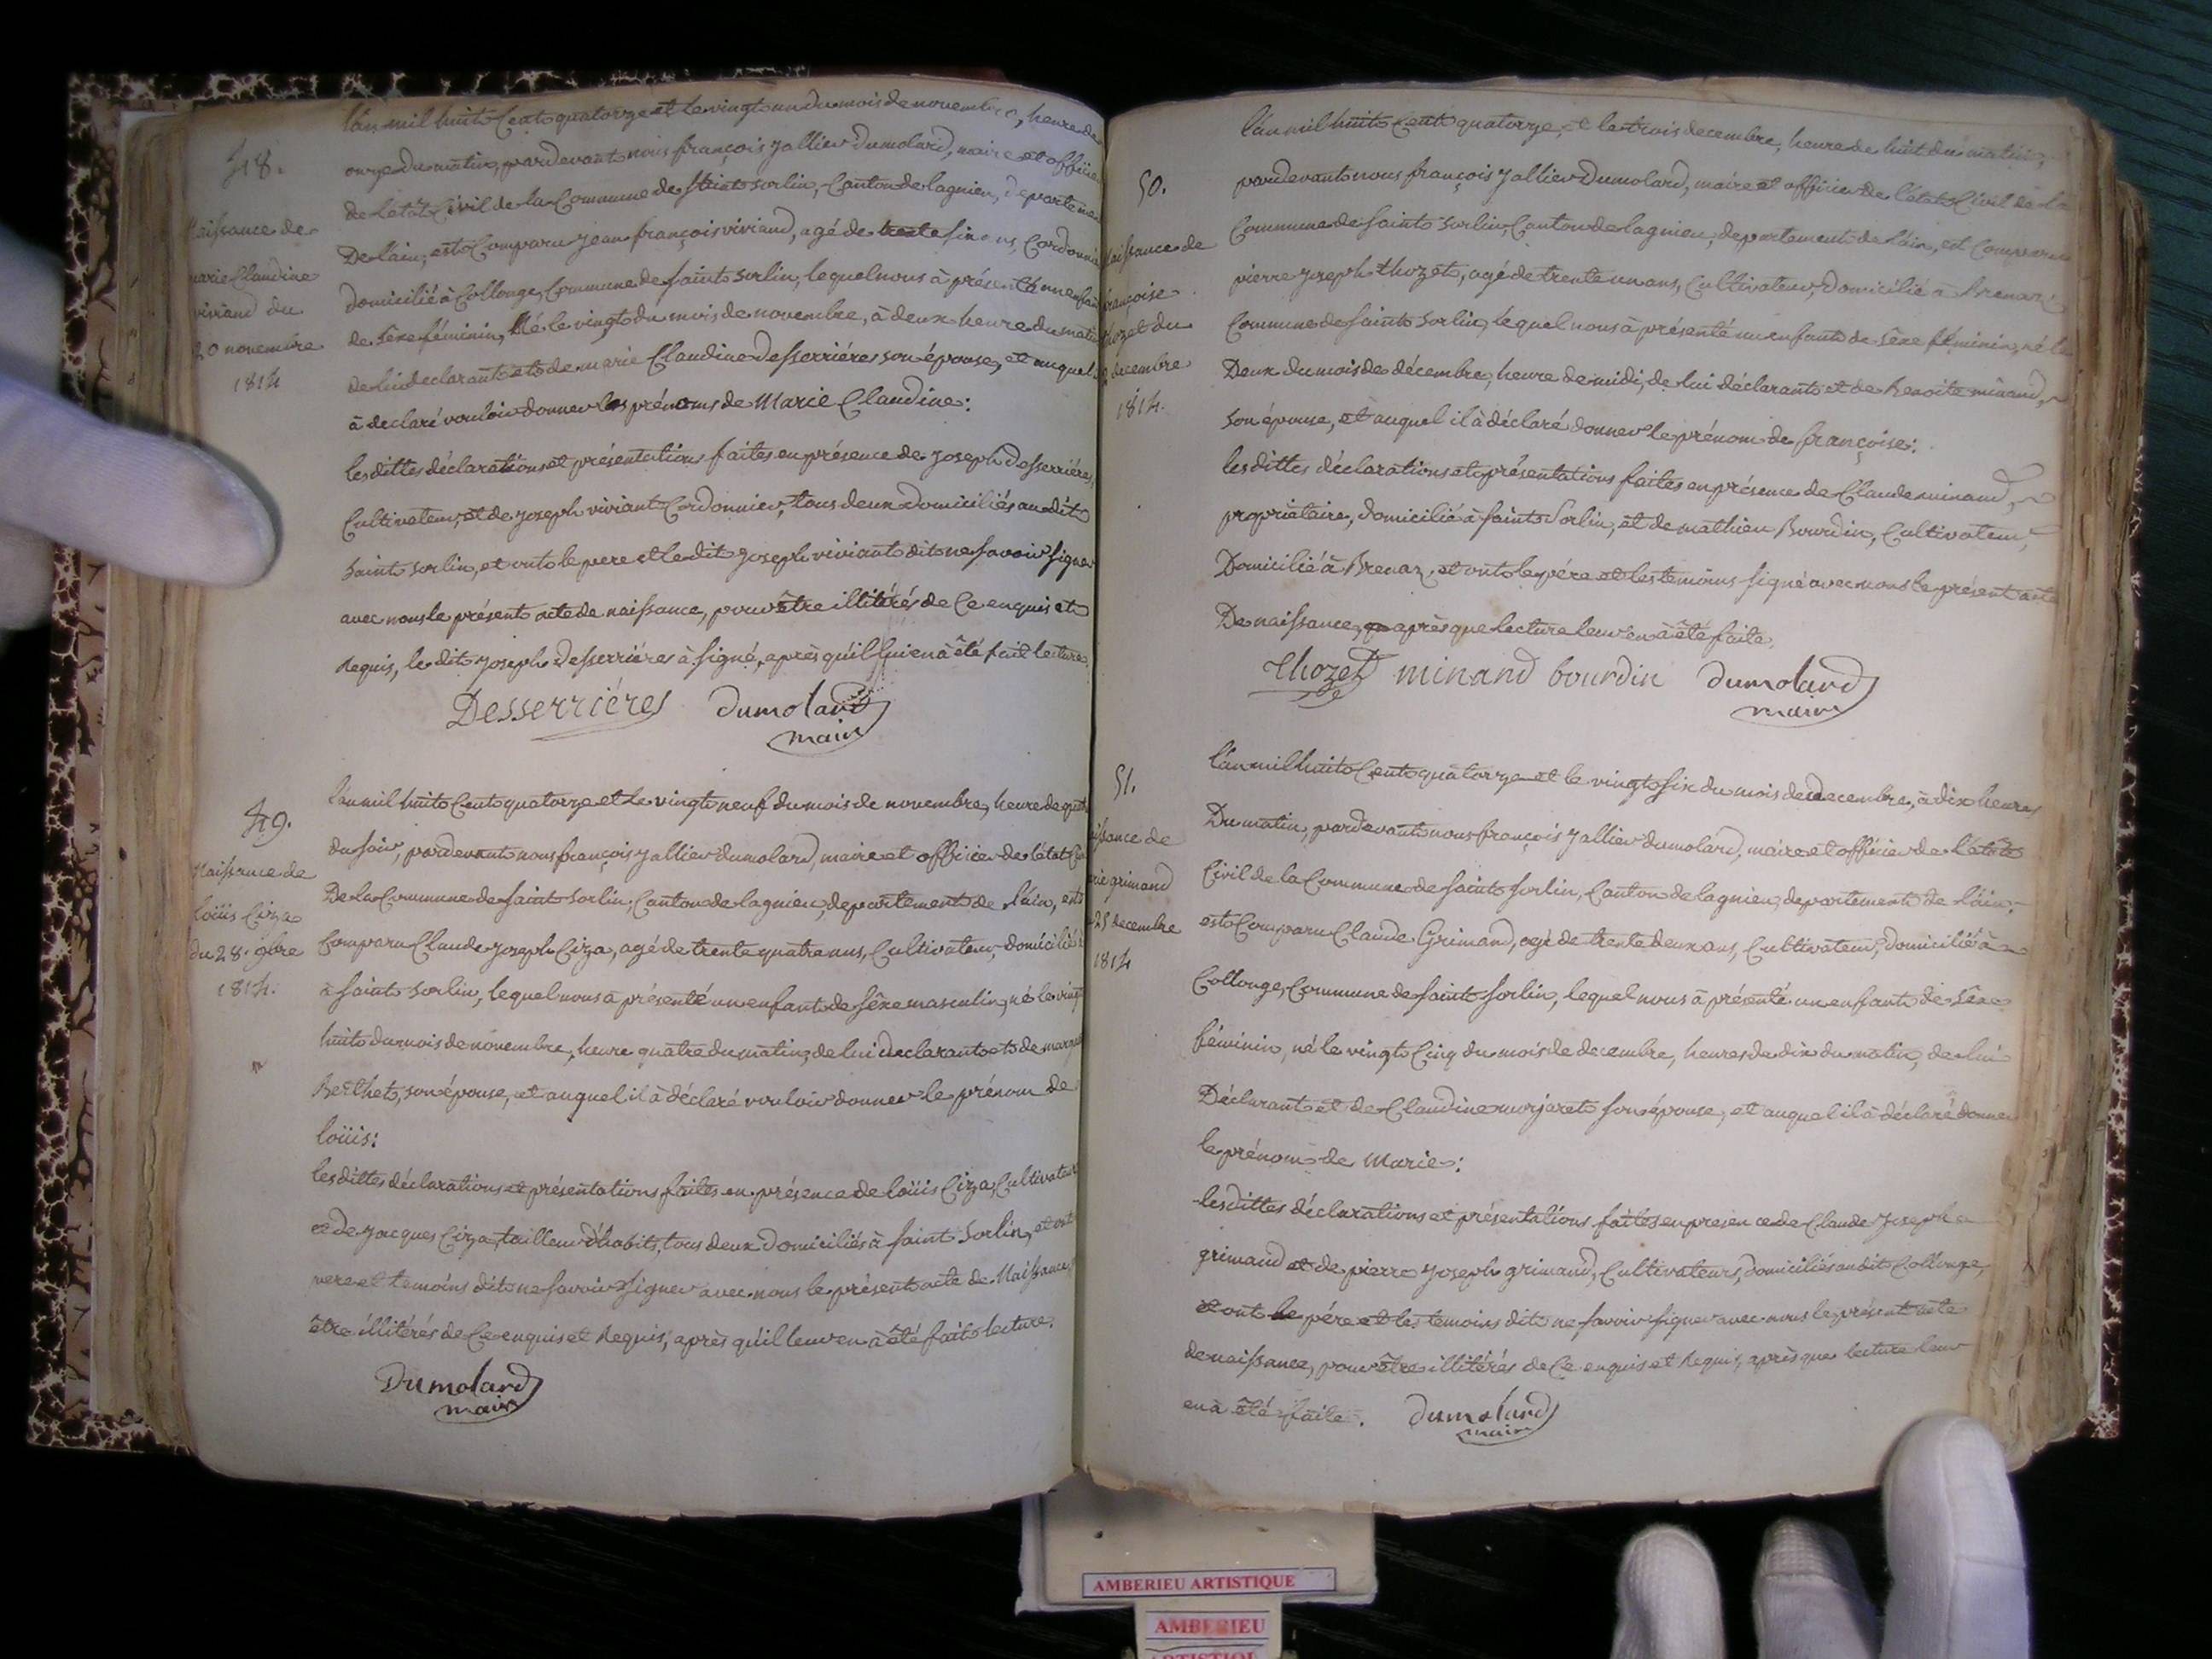 48.
Naissance de
marie Claudine
viviand du
20 novembre
1814
L'an mil huit Cent quatorze et le vingt un du mois de novembre, heure de
onze du matin, pardevant nous françois Jallier Dumolard, maire et officier
de l'etat Civil de la Commune de Saint Sorlin, Canton de lagnieu, departement
De l'ain, est Comparu Jean françois viviand, agé de trente six ans, Cordonnier
domicilié à Collonge, Commune de saint sorlin, lequel nous à présenté un enfant
de sêxe féminin, Né le vingt du mois de novembre, à deux heure du matin
de lui declarant et de marie Claudine Desserriéres son épouse, et auquel
à declaré vouloir donner les prénoms de Marie Claudine:
les dittes déclarations et présentations faites en présence de Joseph Desserriéres,
Cultivateur, et de Joseph viviant Cordonnier, tous deux Domiciliés au dit
Saint Sorlin, et ont le pere et le dit Joseph viviant dit ne savoir signer
avec nous le présent acte de naissance, pour être illitérés de Ce enquis et
Requis, le dit Joseph Desserriéres à signé, après qu'il lui en à été fait lecture.
Desserriéres Dumolard
maire
49.
Naissance de
loüis Ciza
du 28. 9bre
1814.
L'an mil huit Cent quatorze et le vingt neuf du mois de novembre, heure de
du soir, pardevant nous françois Jallier dumolard, maire et officier de l'état
De la Commune de saint sorlin, Canton de lagnieu, departement de l'ain, est
Comparu Claude Joseph Ciza, agé de trente quatre ans, Cultivateur, domicilié
à saint sorlin, lequel nous à présenté un enfant de sêxe masculin, né le vingt
huit du mois de novembre, heure quatre du matin, de lui declarant et de
Berthet, son épouse, et auquel il à déclaré vouloir donner le prénom de
loüis:
les dittes déclarations et présentations faites en présence de loüis Ciza, Cultivateur
et de Jacques Ciza, tailleur d'habits, tous deux Domiciliés à saint Sorlin, et ont
pere et temoins dit ne savoir signer avec nous le présent acte de Naissance,
être illitérés de Ce enquis et Requis, après qu'il leur en à été fait lecture.
Dumolard
maire
50.
Naissance de
françoise
thozet du
2 decembre
1814.
L'an mil huit Cent quatorze, et le trois decembre, heure de huit du matin,
pardevant nous françois Jallier Dumolard, maire et officier de l'état Civil de la
Commune de saint Sorlin, Canton de lagnieu, departement de l'ain, est Comparu
pierre Joseph thozet, agé de trente un ans, Cultivateur, Domicilié à Brenaz
Commune de saint Sorlin, lequel nous à présenté un enfant de sêxe féminin, né le
Deux du mois de décembre, heure de midi, de lui déclarant et de Benoite minand,
son épouse, et auquel il à déclaré donner le prénom de françoise:
les dittes déclarations et présentations faites en présence de Claude minand,
propriétaire, domicilié à saint Sorlin, et de mathieu Bourdin, Cultivateur,
Domicilié à Brenaz, et ont le pére et les temoins signé avec nous le présent acte
De naissance, après que lecture leur en à été faite.
Thozet minand bourdin Dumolard
maire
51.
Naissance de
marie grimand
25 decembre
1814
L'an mil huit Cent quatorze et le vingt six du mois de decembre, à dix heures
Du matin, pardevant nous françois Jallier dumolard, maire et officier de l'état
Civil de la Commune de saint sorlin, Canton de lagnieu, departement de l'ain,
est Comparu Claude Grimand, agé de trente deux ans, Cultivateur, domicilié à
Collonge, Commune de saint sorlin, lequel nous à présenté un enfant de sêxe
féminin, né le vingt Cinq du mois de decembre, heures de dix du matin, de lui
Déclarant et de Claudine murjaret son épouse, et auquel il à déclaré donner
le prénom de Marie:
les dittes déclarations et présentations faites en présence de Claude Joseph
grimand et de pierre Joseph grimand, Cultivateurs, domiciliés au dit Collonge,
et ont le pére et les temoins dit ne savoir signer avec nous le présent acte
de naissance, pour être illitérés de Ce enquis et Requis, après que lecture leur
en à été faite. Dumolard
maire
AMBERIEU ARTISTIQUE
AMBERIEU
ARTISTIQUE